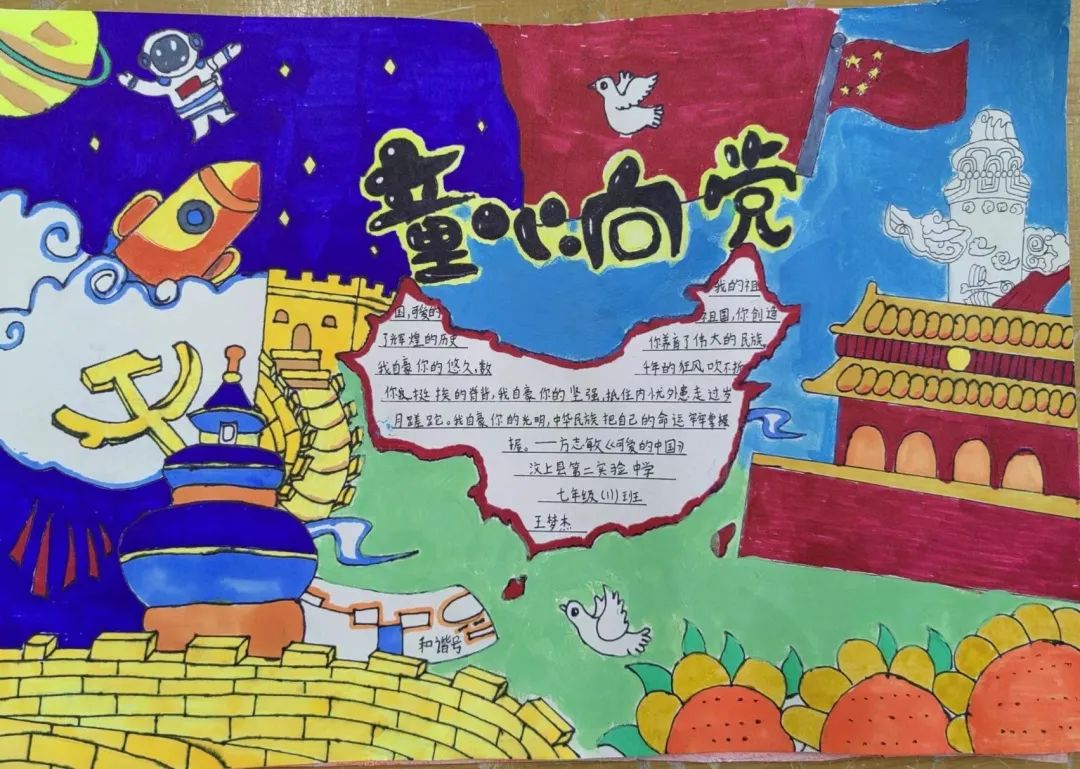 童心向党
我的祖
国,可爱的
祖国,你创造
了辉煌的历史
你养育了伟大的民族。
我自豪你的悠久,数
千年的狂风吹不折
你挺挨的脊背,我自豪你的坚强,抵住内忧外患走过岁
月蹉跎。我自豪你的光明,中华民族把自己的命运牢牢掌握
握。——方志敏《可爱的中国》
汶上县第二实验中学
七年级(11)班
王梦杰
和谐号